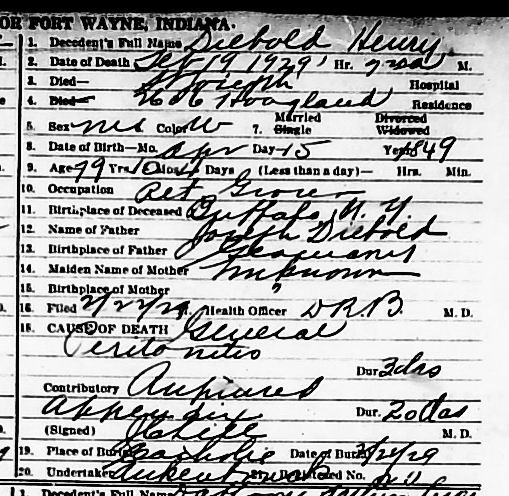 OR FORT WAYNE, INDIANA.
1. Decedent's Full Name Diebold Henry
2. Date of Death Feb 19 1929 Hr. M.
3. Died— St Joseph Hospital
4. Died— Hoagland Residence
5. Sex M Color W 7. Married Single Divorced Widowed
8. Date of Birth—Mo. Apr Day 15 Year 1849
9. Age 79 Yrs 10 Mos 4 Days (Less than a day)— Hrs. Min.
10. Occupation Ret Grocer
11. Birthplace of Deceased Buffalo, N. Y.
12. Name of Father Joseph Diebold
13. Birthplace of Father Germany
14. Maiden Name of Mother Unknown
15. Birthplace of Mother "
16. Filed 2/22/29 Health Officer D.R.B. M. D.
18. CAUSE OF DEATH General
Peritonitis
Dur. 3 das
Contributory Ruptured
Appendix Dur. 20 das
(Signed) M. D.
19. Place of Burial Catholic Date of Burial 2/22/29
20. Undertaker 21. Registered No.
1. Decedent's Full Name